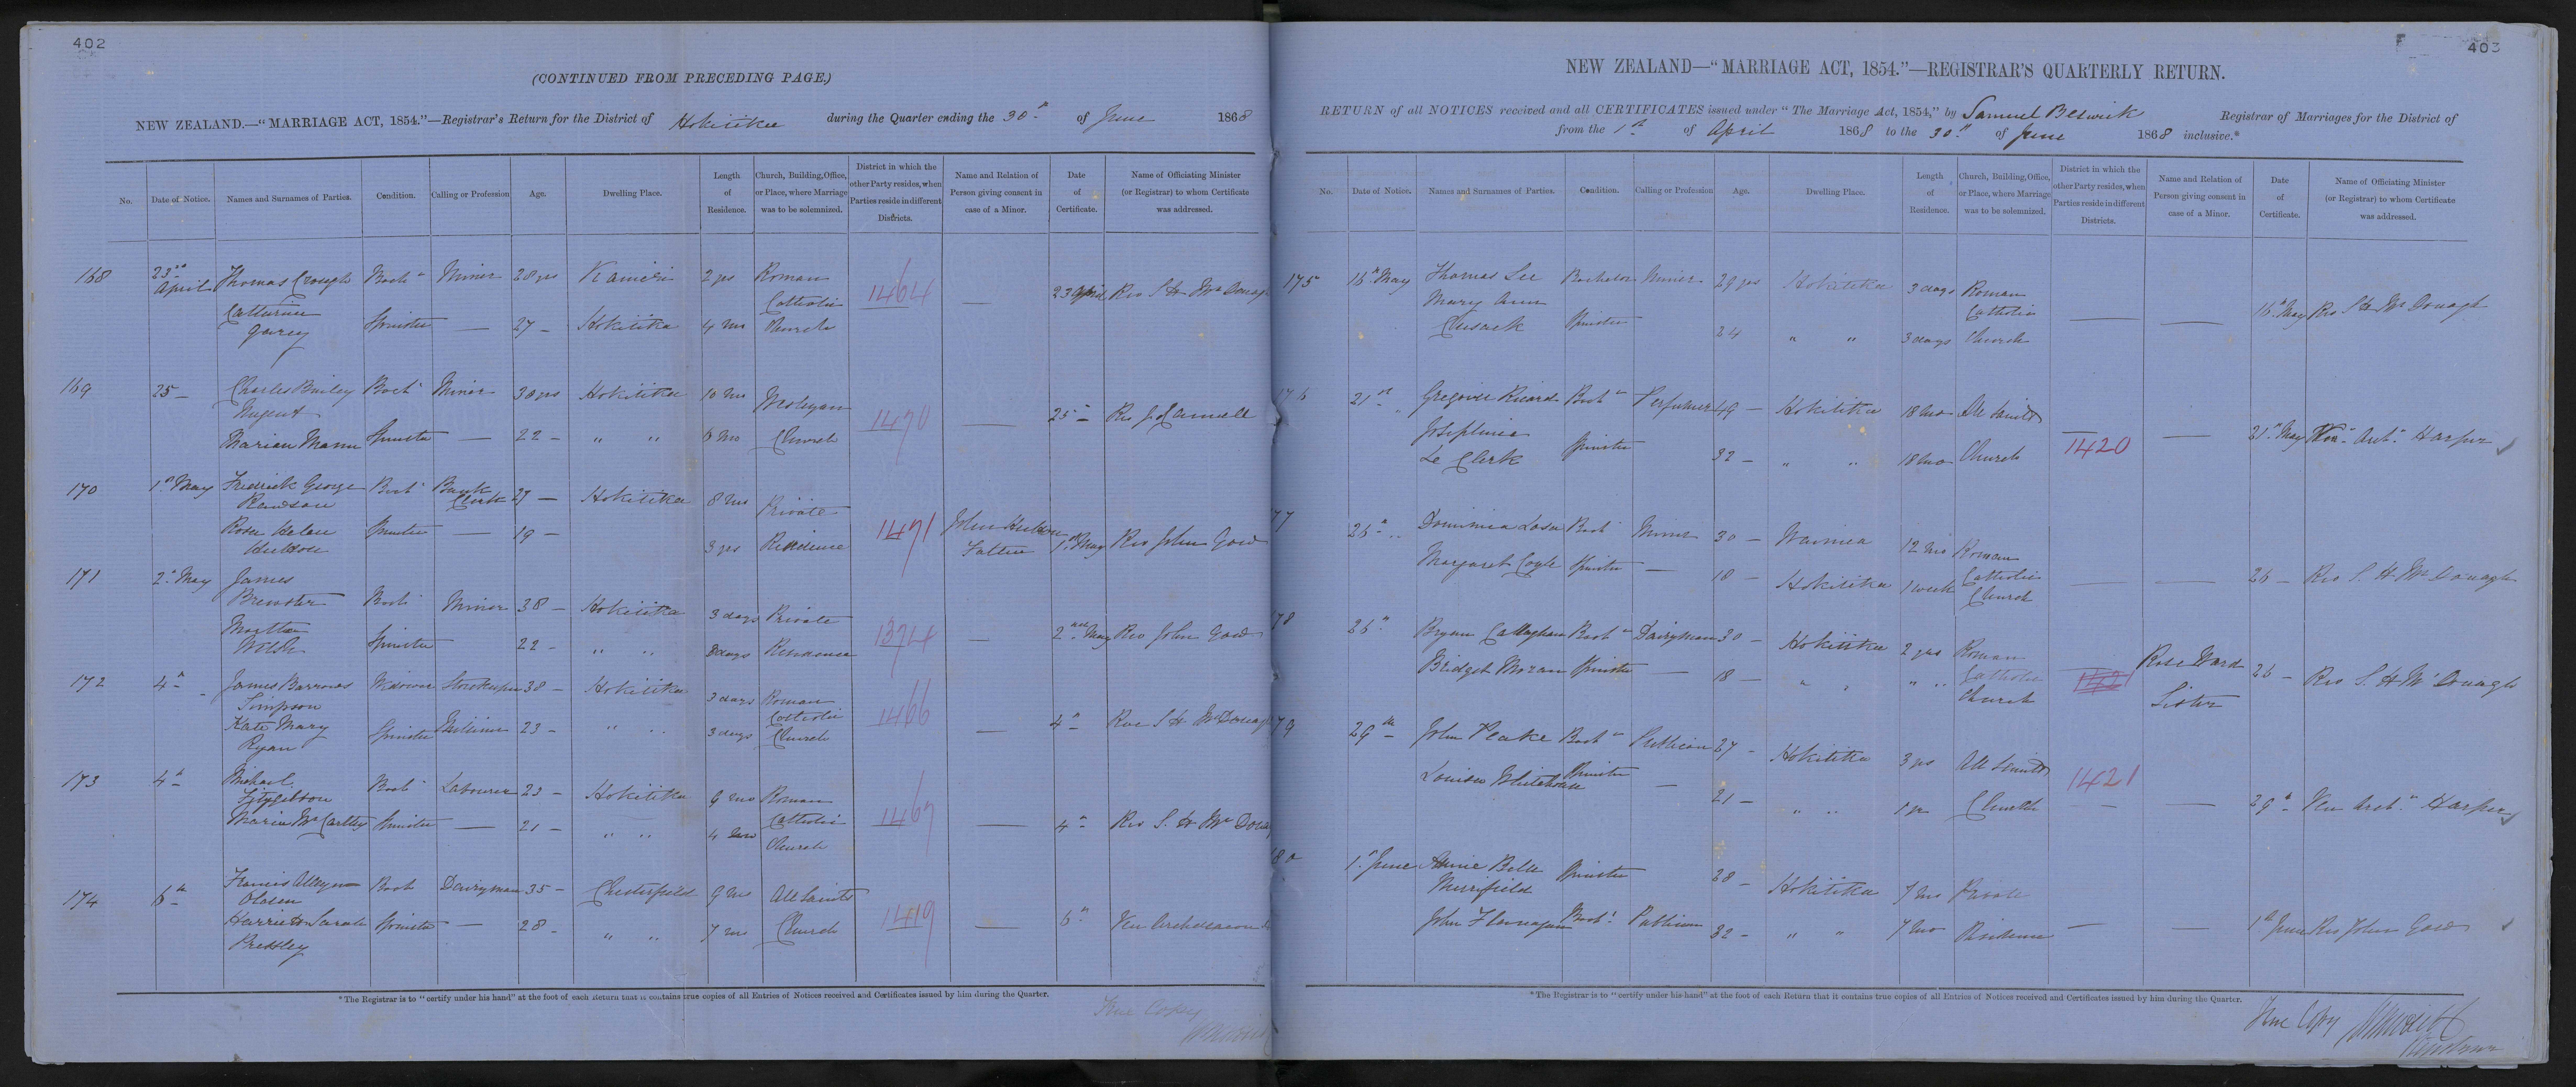 402
(CONTINUED FROM PRECEDING PAGE.)
NEW ZEALAND.—"MARRIAGE ACT, 1854."—Registrar's Return for the District of Hokitika during the Quarter ending the 30th of June 1868
No. Date of Notice. Names and Surnames of Parties. Condition. Calling or Profession Age. Dwelling Place. Length of Residence. Church, Building, Office, or Place, where Marriage was to be solemnized. District in which the other Party resides, when Parties reside in different Districts. Name and Relation of Person giving consent in case of a Minor. Date of Certificate. Name of Officiating Minister (or Registrar) to whom Certificate was addressed.
168 23rd April Thomas Crough Bach Miner 28 yrs Kanieri 2 yrs Roman 1464 — 23 April Rev S H McDonagh
Catherine Spinster — 27 — Hokitika 4 mo Catholic Church
169 25 — Charles Bailey Bach Miner 30 yrs Hokitika 10 mo Wesleyan 1470 — 25 —
Nugent
Marian Mann Spinster — 22 — " " 6 mo Church
170 1st May Fredrick George Bach Bank Clerk 27 — Hokitika 8 mo Private 1471 1st May Rev John Gow
Rawson
Rosa Helen Spinster — 19 — 3 yrs Residence Father
171 2nd May James Bach Miner 38 — Hokitika 3 days Private 1374 — 2nd May Rev John Gow
Brewster
Martha Spinster 22 — " " 8 days Residence
Welsh
172 4th James Barrows Widower Storekeeper 38 — Hokitika 3 days Roman 1466 — 4th Rev S H McDonagh
Simpson
Kate Mary Spinster Milliner 23 — " " 3 days Catholic Church
Ryan
173 4th Michael Bach Labourer 23 — Hokitika 9 mo Roman 1467 — 4th Rev S. H McDonagh
Fitzgibbon
Maria McCarthy Spinster — 21 — " " 4 mo Catholic Church
174 6th Francis Bach Dairyman 35 — Chesterfield 9 mo All Saints 1419 — 6th Ven Archdeacon
Olasen
Harriet Sarah Spinster — 28 — " " 7 mo Church
Pressley
*The Registrar is to "certify under his hand" at the foot of each Return that it contains true copies of all Entries of Notices received and Certificates issued by him during the Quarter.
True Copy
403
NEW ZEALAND—"MARRIAGE ACT, 1854."—REGISTRAR'S QUARTERLY RETURN.
RETURN of all NOTICES received and all CERTIFICATES issued under "The Marriage Act, 1854," by Samuel Beswick Registrar of Marriages for the District of
from the 1st of April 1868 to the 30th of June 1868 inclusive.*
No. Date of Notice. Names and Surnames of Parties. Condition. Calling or Profession Age. Dwelling Place. Length of Residence. Church, Building, Office, or Place, where Marriage was to be solemnized. District in which the other Party resides, when Parties reside in different Districts. Name and Relation of Person giving consent in case of a Minor. Date of Certificate. Name of Officiating Minister (or Registrar) to whom Certificate was addressed.
175 16th May Thomas Lee Bachelor Miner 29 yrs Hokitika 3 days Roman — — 16th May Rev S H McDonagh
Mary Ann Spinster 24 " " 3 days Catholic Church
Cusack
176 21st " Gregoire Ricard Bach Perfumer 49 — Hokitika 18 mo All Saints 1420 — 21st May Ven Arch Harper
Josephine Spinster 32 — " " 18 mo Church
Le Clerk
77 26th " Bach Miner 30 — Waimea 12 mo Roman — — 26 — Rev S. H McDonagh
Margaret Coyle Spinster — 18 — Hokitika 1 week Catholic Church
78 26th Bryan Callaghan Bach Dairyman 30 — Hokitika 2 yrs Roman Rose Ward 26 — Rev S. H McDonagh
Bridget Moran Spinster — 18 — " " " " Catholic Church Sister
79 29th John Peake Bach Publican 27 — Hokitika 3 yrs All Saints 1421 — 29th Ven Arch Harper
Louisa Whitehouse Spinster — 21 — " " 1 yr Church
180 1st June Annie Belle Spinster 28 — Hokitika 7 mo Private — — 1st June Rev John Gow
Merrifield
John Flannagan Bach Publican 32 — " " 7 mo Residence
*The Registrar is to "certify under his hand" at the foot of each Return that it contains true copies of all Entries of Notices received and Certificates issued by him during the Quarter.
True Copy
Registrar